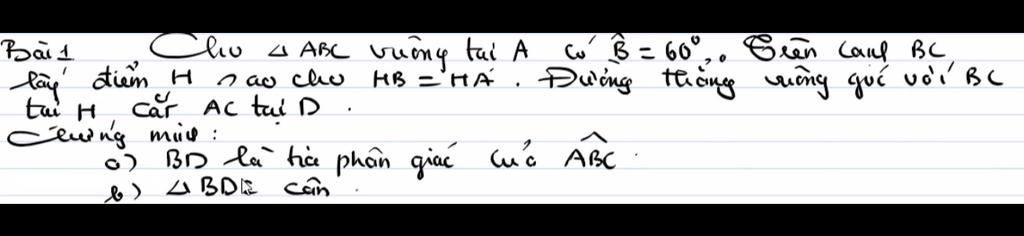 Bài 1 Cho △ ABC vuông tại A có B̂ = 60°. Trên cạnh BC
lấy điểm H sao cho HB = HA. Đường thẳng vuông góc với BC
tại H cắt AC tại D.
Chứng minh:
a) BD là tia phân giác của ABC
b) △ BDC cân.